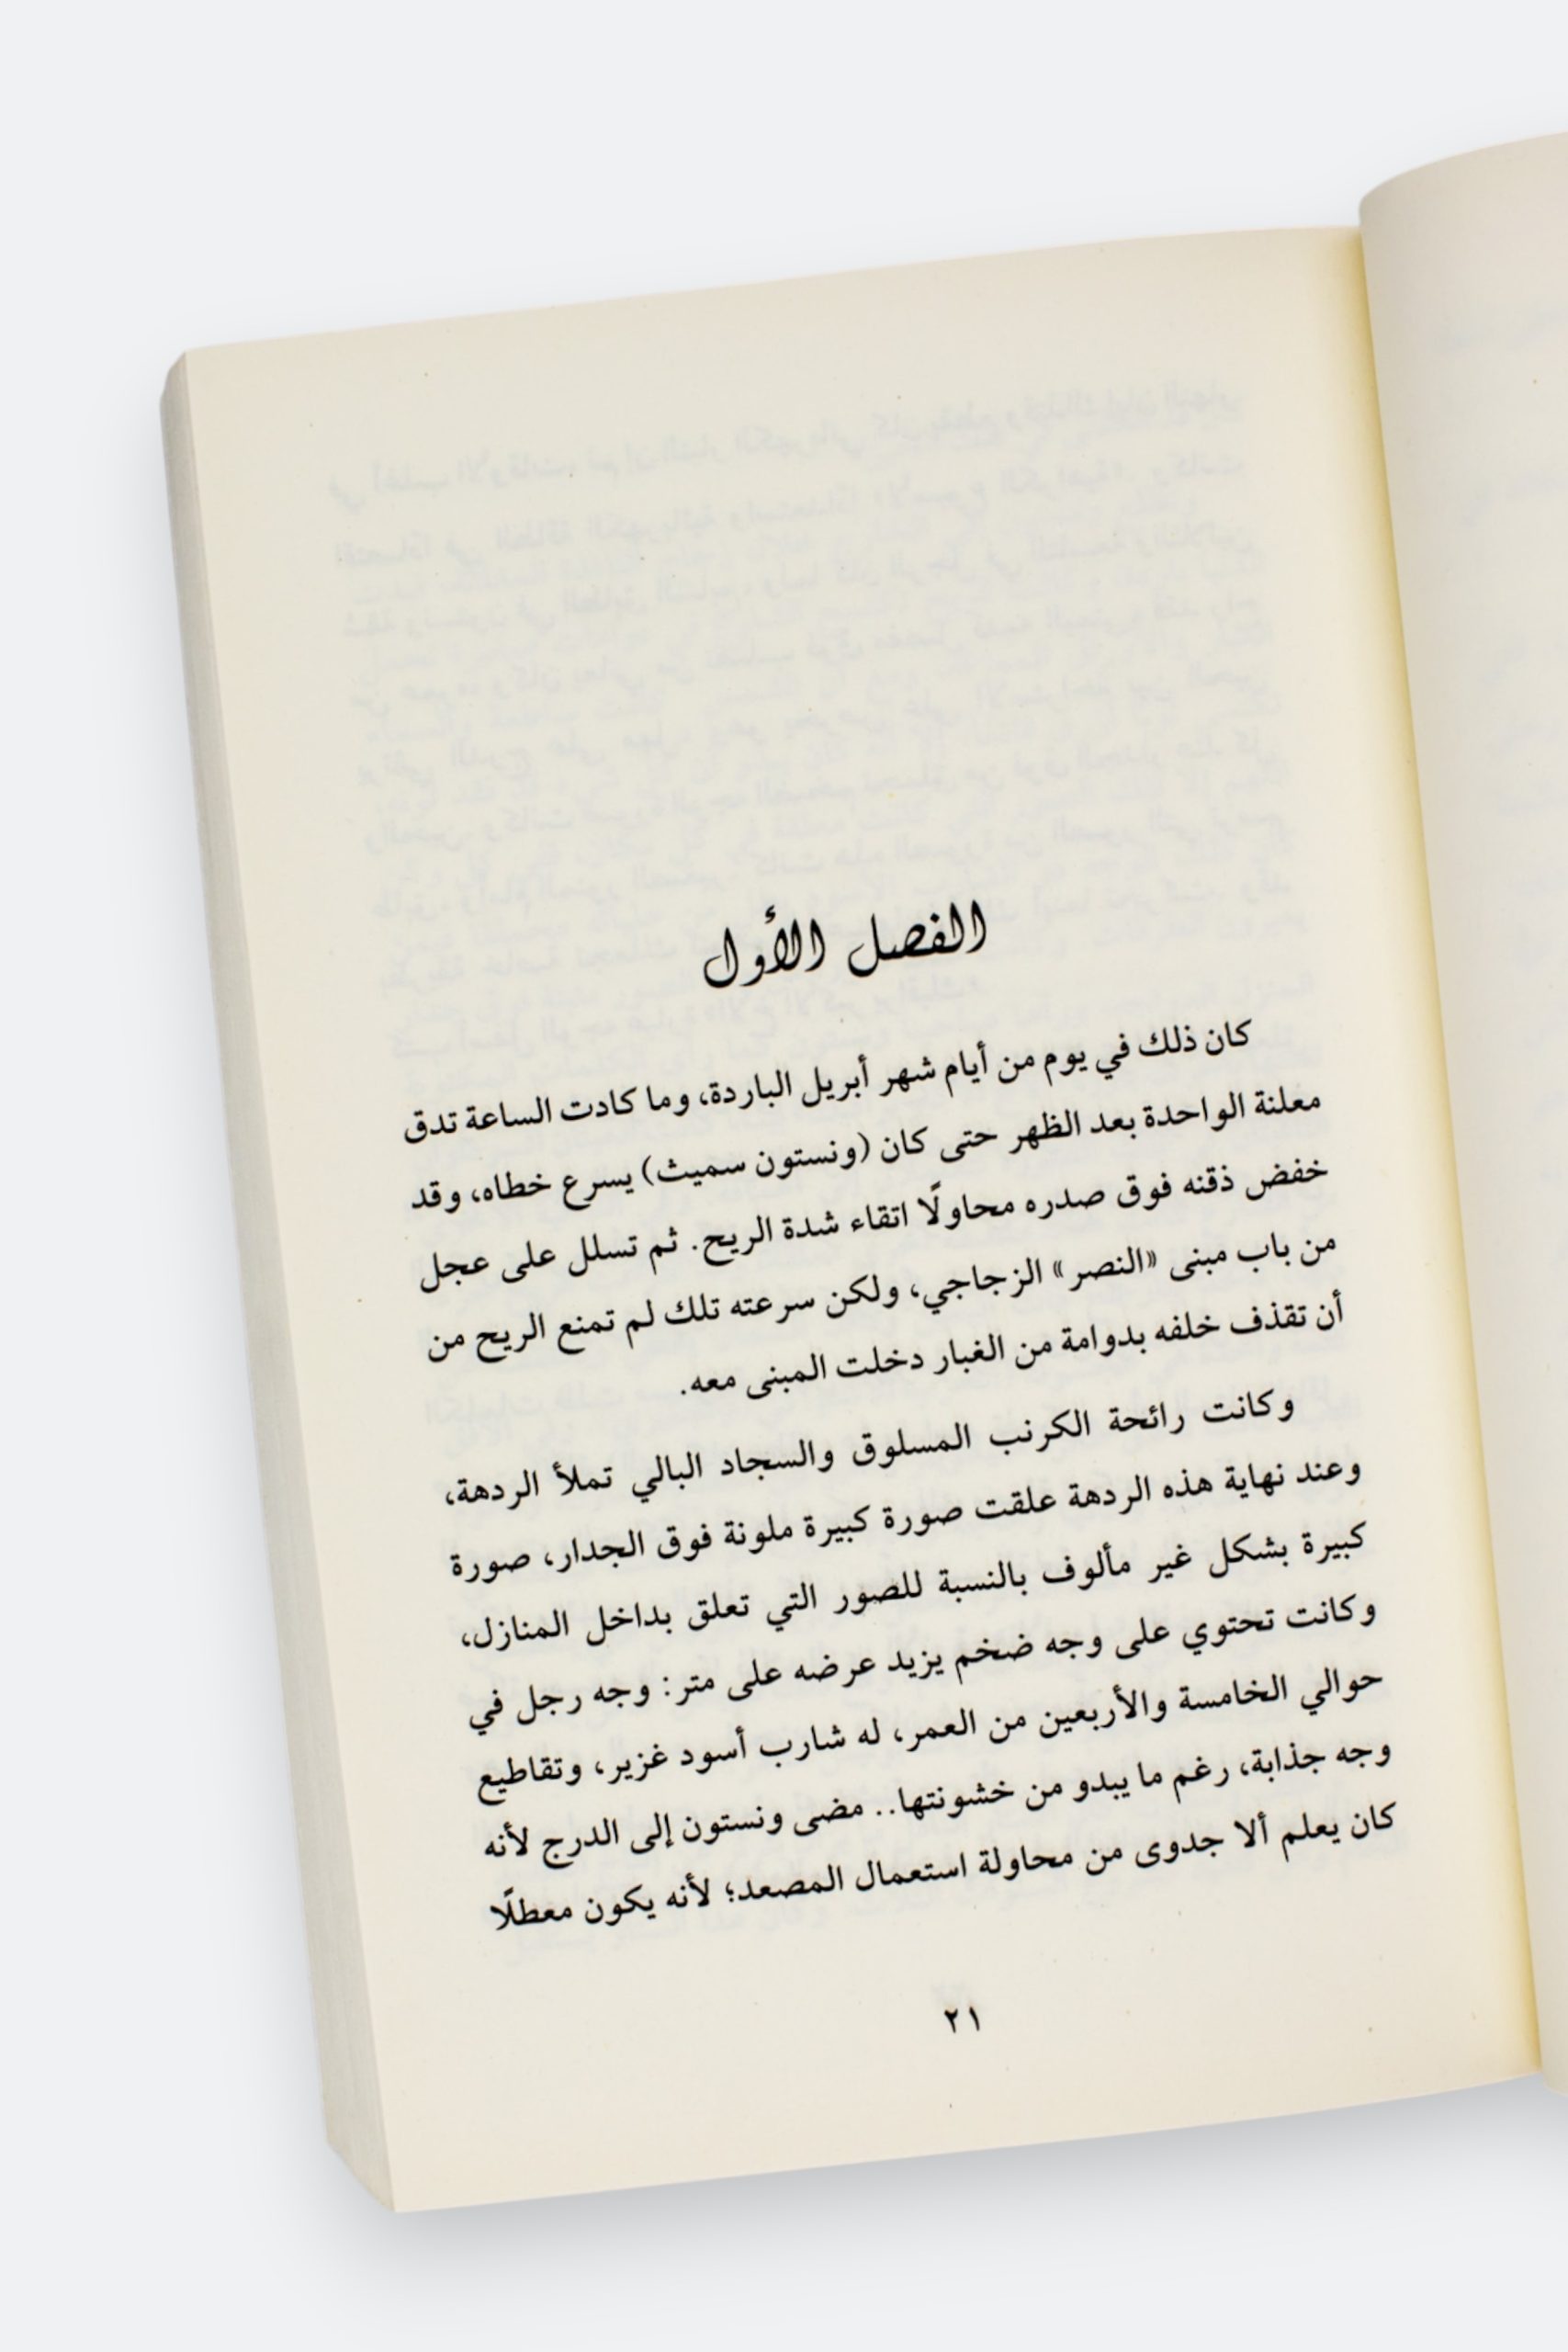 الفصل الأول
كان ذلك في يوم من أيام شهر أبريل الباردة، وما كادت الساعة تدق
معلنة الواحدة بعد الظهر حتى كان (ونستون سميث) يسرع خطاه، وقد
خفض ذقنه فوق صدره محاولًا اتقاء شدة الريح. ثم تسلل على عجل
من باب مبنى «النصر» الزجاجي، ولكن سرعته تلك لم تمنع الريح من
أن تقذف خلفه بدوامة من الغبار دخلت المبنى معه.
وكانت رائحة الكرنب المسلوق والسجاد البالي تملأ الردهة،
وعند نهاية هذه الردهة علقت صورة كبيرة ملونة فوق الجدار، صورة
كبيرة بشكل غير مألوف بالنسبة للصور التي تعلق بداخل المنازل،
وكانت تحتوي على وجه ضخم يزيد عرضه على متر: وجه رجل في
حوالي الخامسة والأربعين من العمر، له شارب أسود غزير، وتقاطيع
وجه جذابة، رغم ما يبدو من خشونتها.. مضى ونستون إلى الدرج لأنه
كان يعلم ألا جدوى من محاولة استعمال المصعد؛ لأنه يكون معطلًا
٢١